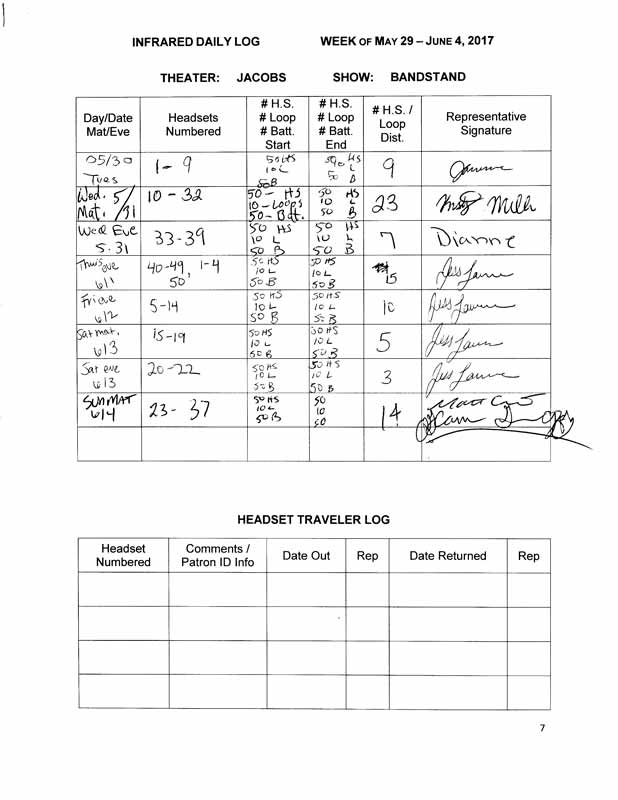 INFRARED DAILY LOG WEEK OF MAY 29 – JUNE 4, 2017
THEATER: JACOBS SHOW: BANDSTAND
Day/Date Mat/Eve
Headsets Numbered
# H.S. # Loop # Batt. Start
# H.S. # Loop # Batt. End
# H.S. / Loop Dist.
Representative Signature
05/30 Tues
1-9
50 HS
10 L
50 B
50 HS
L
50 B
9
Wed. 5/31 Mat.
10-32
50- HS
10-Loops
50-Batt.
50 HS
10 L
50 B
23
Wed Eve 5.31
33-39
50 HS
10 L
50 B
50 HS
10 L
50 B
7
Dianne
Thurs eve 6/1
40-49, 1-4
50,
50 HS
10 L
50 B
50 HS
10 L
50 B
15
Fri eve 6/2
5-14
50 HS
10 L
50 B
50 HS
10 L
50 B
10
Sat mat. 6/3
15-19
50 HS
10 L
50 B
50 HS
10 L
50 B
5
Sat eve 6/3
20-22
50 HS
10 L
50 B
50 HS
10 L
50 B
3
SUN MAT 6/4
23-37
50 HS
10 L
50 B
50
10
50
14
HEADSET TRAVELER LOG
Headset Numbered
Comments / Patron ID Info
Date Out
Rep
Date Returned
Rep
7